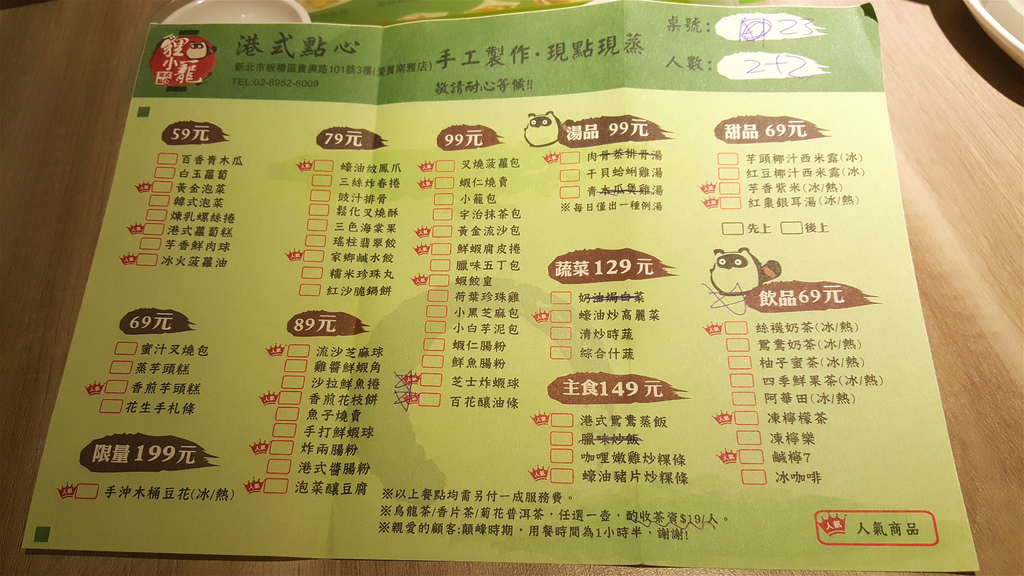 貍小籠
港式點心
手工製作·現點現蒸
新北市板橋區貴興路101號3樓(愛買南雅店)
TEL:02-8952-8009
敬請耐心等候!!
桌號: 23
人數: 2+2
59元
百香青木瓜
白玉蘿蔔
黃金泡菜
韓式泡菜
煉乳螺絲捲
港式蘿蔔糕
芋香鮮肉球
冰火菠蘿油
69元
蜜汁叉燒包
蒸芋頭糕
香煎芋頭糕
花生手札條
限量199元
手沖木桶豆花(冰/熱)
79元
蠔油紋鳳爪
三絲炸春捲
豉汁排骨
鬆化叉燒酥
三色海棠果
瑤柱翡翠餃
家鄉鹹水餃
糯米珍珠丸
紅沙脆鍋餅
89元
流沙芝麻球
雞醬鮮蝦角
沙拉鮮魚捲
香煎花枝餅
魚子燒賣
手打鮮蝦球
炸兩腸粉
港式醬腸粉
泡菜釀豆腐
99元
叉燒菠蘿包
蝦仁燒賣
小籠包
宇治抹茶包
黃金流沙包
鮮蝦腐皮捲
臘味五丁包
蝦餃皇
荷葉珍珠雞
小黑芝麻包
小白芋泥包
蝦仁腸粉
鮮魚腸粉
芝士炸蝦球
百花釀油條
湯品 99元
肉骨茶排骨湯
干貝蛤蜊雞湯
青木瓜煲雞湯
※每日僅出一種例湯
蔬菜129元
奶油焗白菜
蠔油炒高麗菜
清炒時蔬
綜合什蔬
主食149元
港式鴛鴦蒸飯
臘味炒飯
咖哩嫩雞炒粿條
蠔油豬片炒粿條
甜品 69元
芋頭椰汁西米露(冰)
紅豆椰汁西米露(冰)
芋香紫米(冰/熱)
紅棗銀耳湯(冰/熱)
先上 後上
飲品69元
絲襪奶茶(冰/熱)
鴛鴦奶茶(冰/熱)
柚子蜜茶(冰/熱)
四季鮮果茶(冰/熱)
阿華田(冰/熱)
凍檸檬茶
凍檸樂
鹹檸7
冰咖啡
※以上餐點均需另付一成服務費。
※烏龍茶/香片茶/菊花普洱茶,任選一壺,酌收茶資$19/人。
※親愛的顧客:顛峰時期,用餐時間為1小時半,謝謝!
人氣 人氣商品